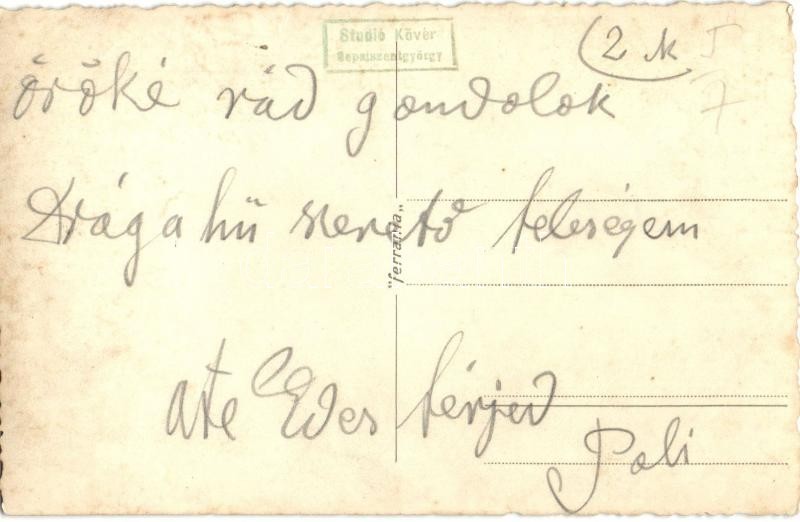 Studió Kövér
Sepsiszentgyörgy
2 M
7
öröké rád gondolok
Drága hű szerető feleségem
"ferrania"
a te Edes férjed
Pali